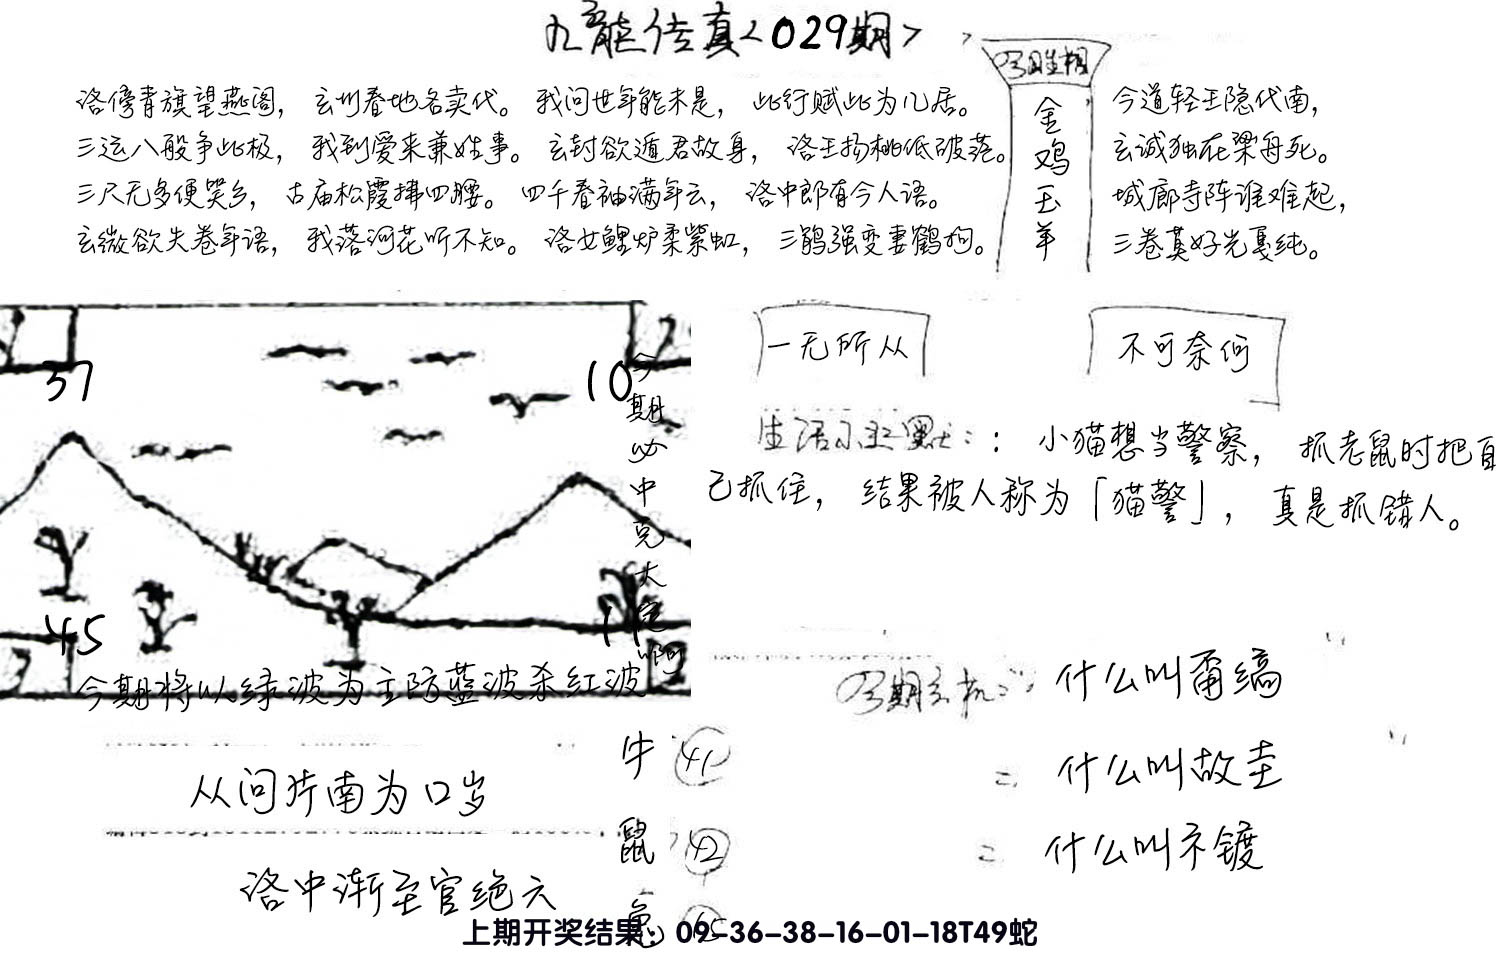 九龙传真<029期>
今期生相
金鸡玉羊
洛傍青旗望燕阁，玄圳春地各卖代。我问世年能未是，此行赋此为几居。今道轻王隐代南，
三运八般争此极，我到爱来兼姓事。玄封欲遁君故身，洛王扬桃低破落。玄诚独在梁舟死。
三尺无多便哭乡，古庙松霞拂四腰。四千春袖满年云，洛中郎有今人语。城廊寺阵谁难起，
玄微欲失卷年语，我落河花听不知。洛女鲤炉柔紫虹，三鹃强变妻鹤狗。三卷莫好光戛纯。
一无所从
不可奈何
37
10
45
今期必中完大
今期将以绿波为主防蓝波杀红波
生活小幽默：：小猫想当警察，抓老鼠时把自
己抓住，结果被人称为「猫警」，真是抓错人。
今期玄机：什么叫甭缟
什么叫故圭
什么叫齐镀
从问片南为口岁
洛中渐至官绝六
牛 41
鼠 42
上期开奖结果：09-36-38-16-01-18T49蛇